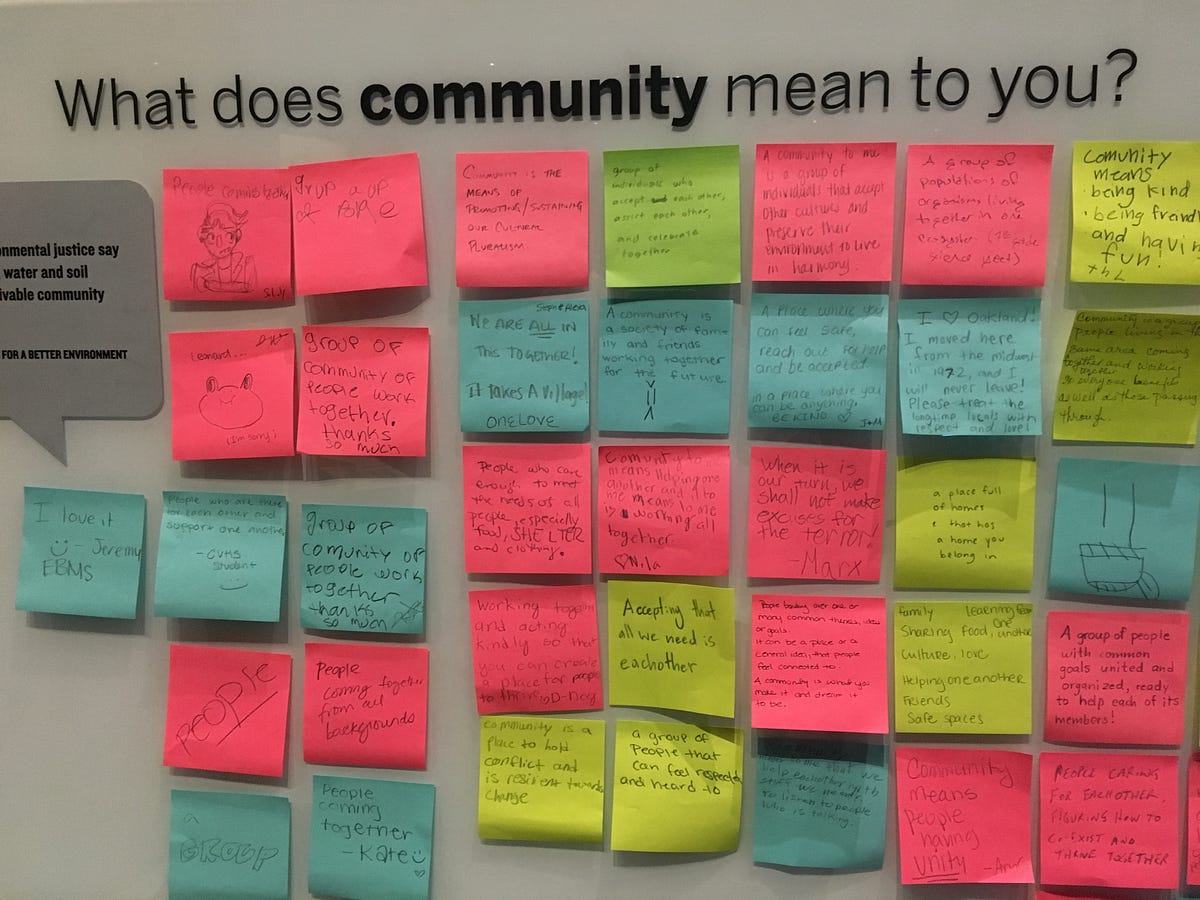 What does community mean to you?
onmental justice say
water and soil
ivable community
FOR A BETTER ENVIRONMENT
People coming
grup a op
of
COMMUNITY IS THE
MEANS OF
PROMOTING/SUSTAINING
OUR CULTURAL
PLURALISM.
group of
individuals who
accept each other,
assist each other,
and celebrate
together
A community to me
is a group of
individuals that accept
other cultures and
preserve their
environment to live
in harmony.
A group of
populations of
organisms living
together in one
Comunity
means
being kind
being friend
and havin
fun!
Leonard...
(I'm sorry)
group OF
community OF
people work
together.
thanks
so much
WE ARE ALL IN
This TOGETHER!
IT TAKES A Village!
ONE LOVE
A community is
a society of fame
ily and friends
working together
for the future.
A Place where you
can feel safe,
reach out for help
and be accepted
in a place where you
can be anything.
BE KIND ♡ J+M
I ♡ Oakland!
I moved here
from the midwest
in 1972, and I
will never leave!
Please treat the
longtime locals with
respect and love!
Community is a group
people living in
same area coming
together and working
together
so everyone benefits
as well as those passing
through.
I love it
- Jeremy
EBMS
People who are there
for each other and
support one another
- CVHS
Student
group OF
comunity OF
people work
together
thanks
so much
People who care
enough to meet
the needs of all
people, especially
food, SHELTER
and clothing.
Comunity to
means Helping one
another and it to
me means to me
is working all
together.
♡Nila
When it is
our turn, we
shall not make
excuses for
the terror!
- Marx
a place full
of homes
& that has
a home you
belong in
PEOPLE
People
coming together
from all
backgrounds
working
and acting
kindly so that
you can create
a place for people
to thrive
Accepting that
all we need is
eachother
People bonding over one or
many common themes, ideas
or goals.
It can be a place or a
General idea, that people
feel connected to.
A community is what you
make it and dream it
to be.
family learning from
one
Sharing food, another
culture, love
Helping one another
Friends
Safe spaces
A group of people
with common
goals united and
organized, ready
to help each of its
members!
a
GROUP
People
coming
together
- Kate
♡
community is a
place to hold
conflict and
is resilient towards
change
a group of
People that
can feel respected
and heard to
that we
help eachother with
stuff we need.
To listen to people
who is talking.
Community
means
people
having
Unity
PEOPLE CARING
FOR EACHOTHER,
FIGURING HOW TO
CO-EXIST AND
THRIVE TOGETHER